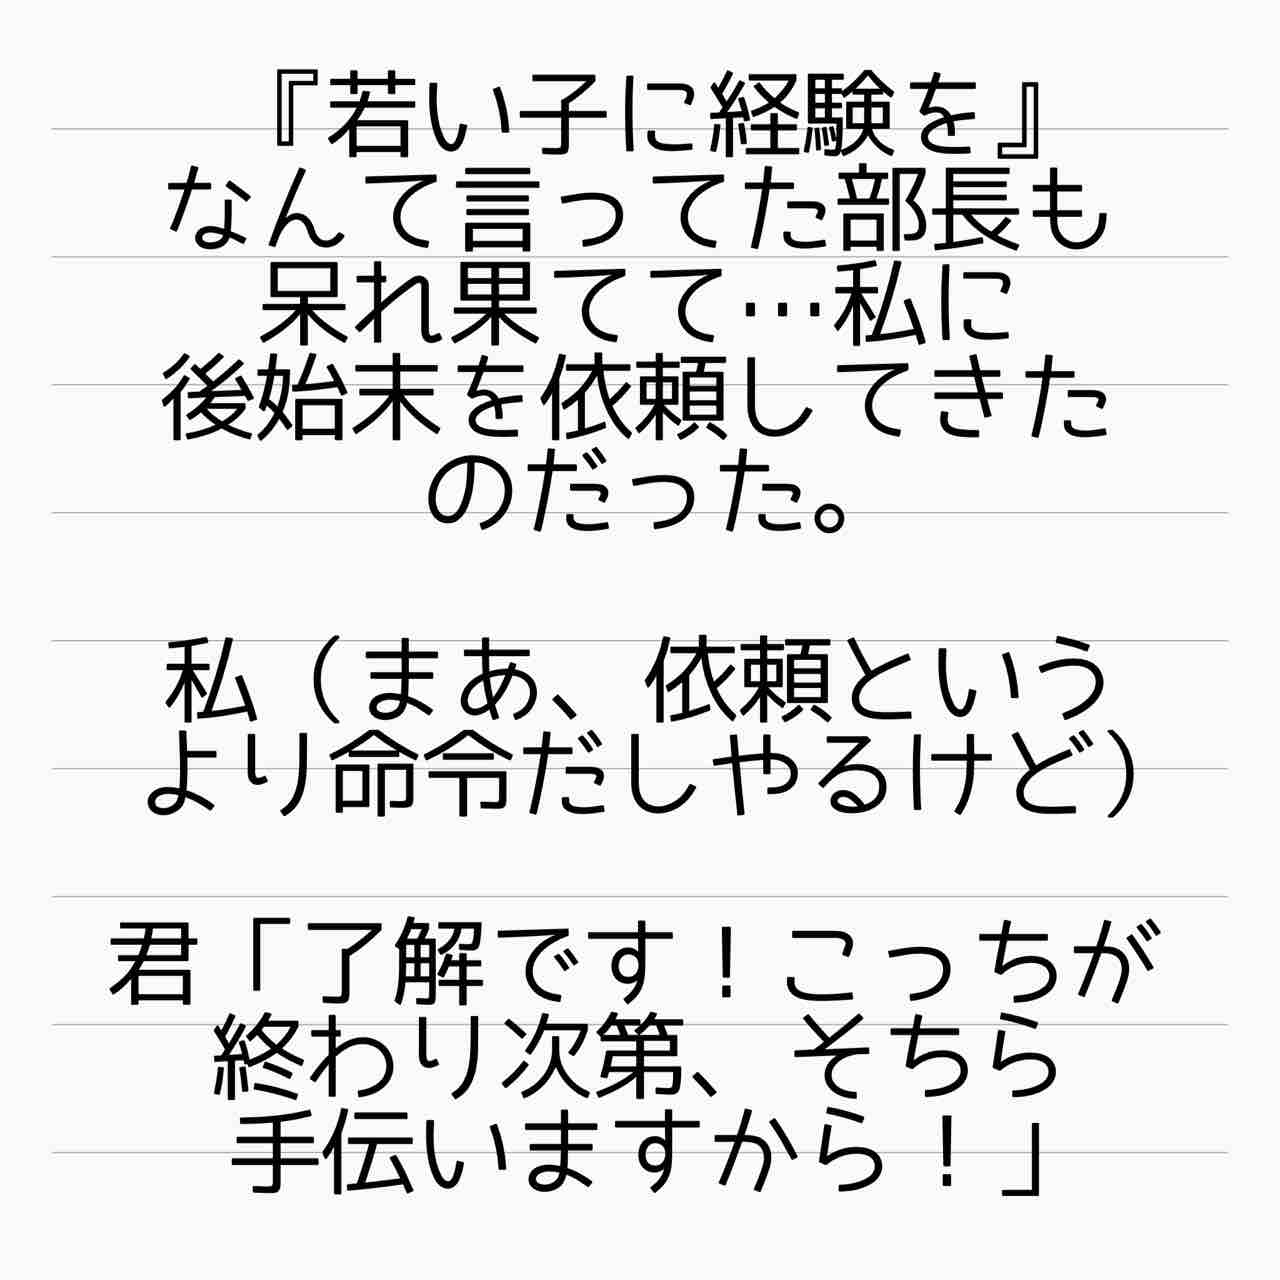 『若い子に経験を』
なんて言ってた部長も
呆れ果てて…私に
後始末を依頼してきた
のだった。
私（まあ、依頼という
より命令だしやるけど）
君「了解です！こっちが
終わり次第、そちら
手伝いますから！」